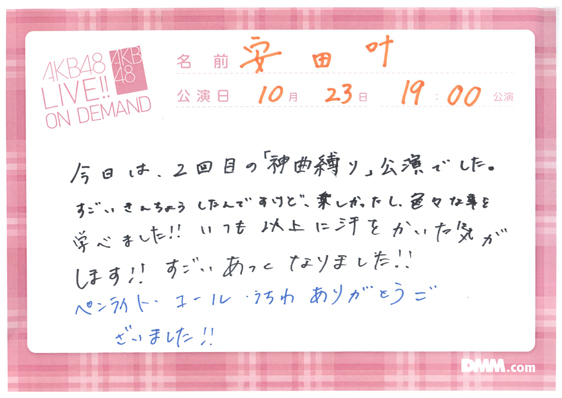 AKB48
LIVE!!
ON DEMAND
AKB
48
名前 安田叶
公演日 10月 23日 19:00 公演
今日は、2回目の「神曲縛り」公演でした。
すごいきんちょうしたんですけど、楽しかったし、色々な事を
学べました!! いつも以上に汗をかいた気が
します!! すごいあっとなりました!!
ペンライト・コール・うちわ ありがとうご
ざいました!!
DMM.com